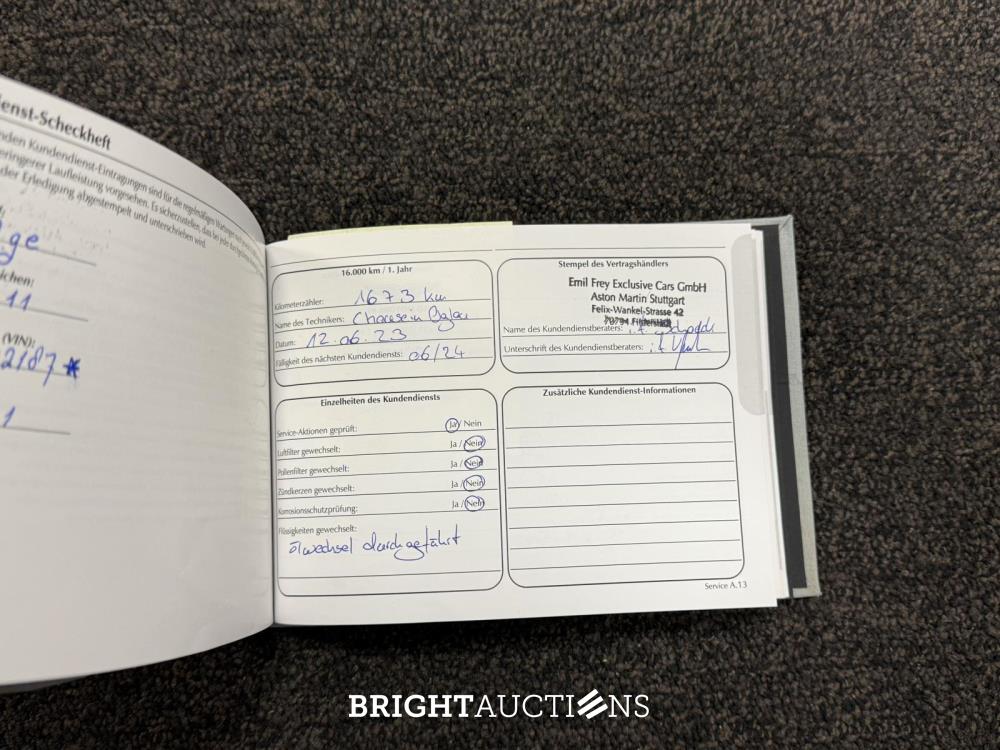 ienst-Scheckheft
nden Kundendienst-Eintragungen sind für die regelmäßigen
eringerer Laufleistung vorgesehen. Es sicherzustellen, dass bei jede
der Erledigung abgestempelt und unterschrieben wird.
ge
ichen:
11
(VIN):
2187*
1
16.000 km / 1. Jahr
Kilometerzähler: 1673 km
Name des Technikers:
Datum: 12.06.23
Fälligkeit des nächsten Kundendiensts: 06/24
Stempel des Vertragshändlers
Emil Frey Exclusive Cars GmbH
Aston Martin Stuttgart
Felix-Wankel-Strasse 42
70794 Filderstadt
Name des Kundendienstberaters:
Unterschrift des Kundendienstberaters:
Einzelheiten des Kundendiensts
Service-Aktionen geprüft: Ja/ Nein
Luftfilter gewechselt: Ja / Nein
Pollenfilter gewechselt: Ja / Nein
Zündkerzen gewechselt: Ja / Nein
Korrosionsschutzprüfung: Ja / Nein
Flüssigkeiten gewechselt:
ölwechsel durchgeführt
Zusätzliche Kundendienst-Informationen
Service A.13
BRIGHTAUCTIONS